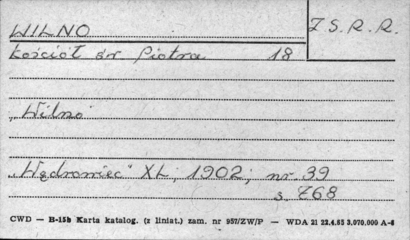 WILNO
Z.S.R.R.
Kościół św. Piotra 18
"Wilno"
"Wędrowiec" XL, 1902, nr. 39
s. 768
CWD — B-15b Karta katalog. (z liniat.) zam. nr 957/ZW/P — WDA 21 22.4.83 3.070.000 A-6